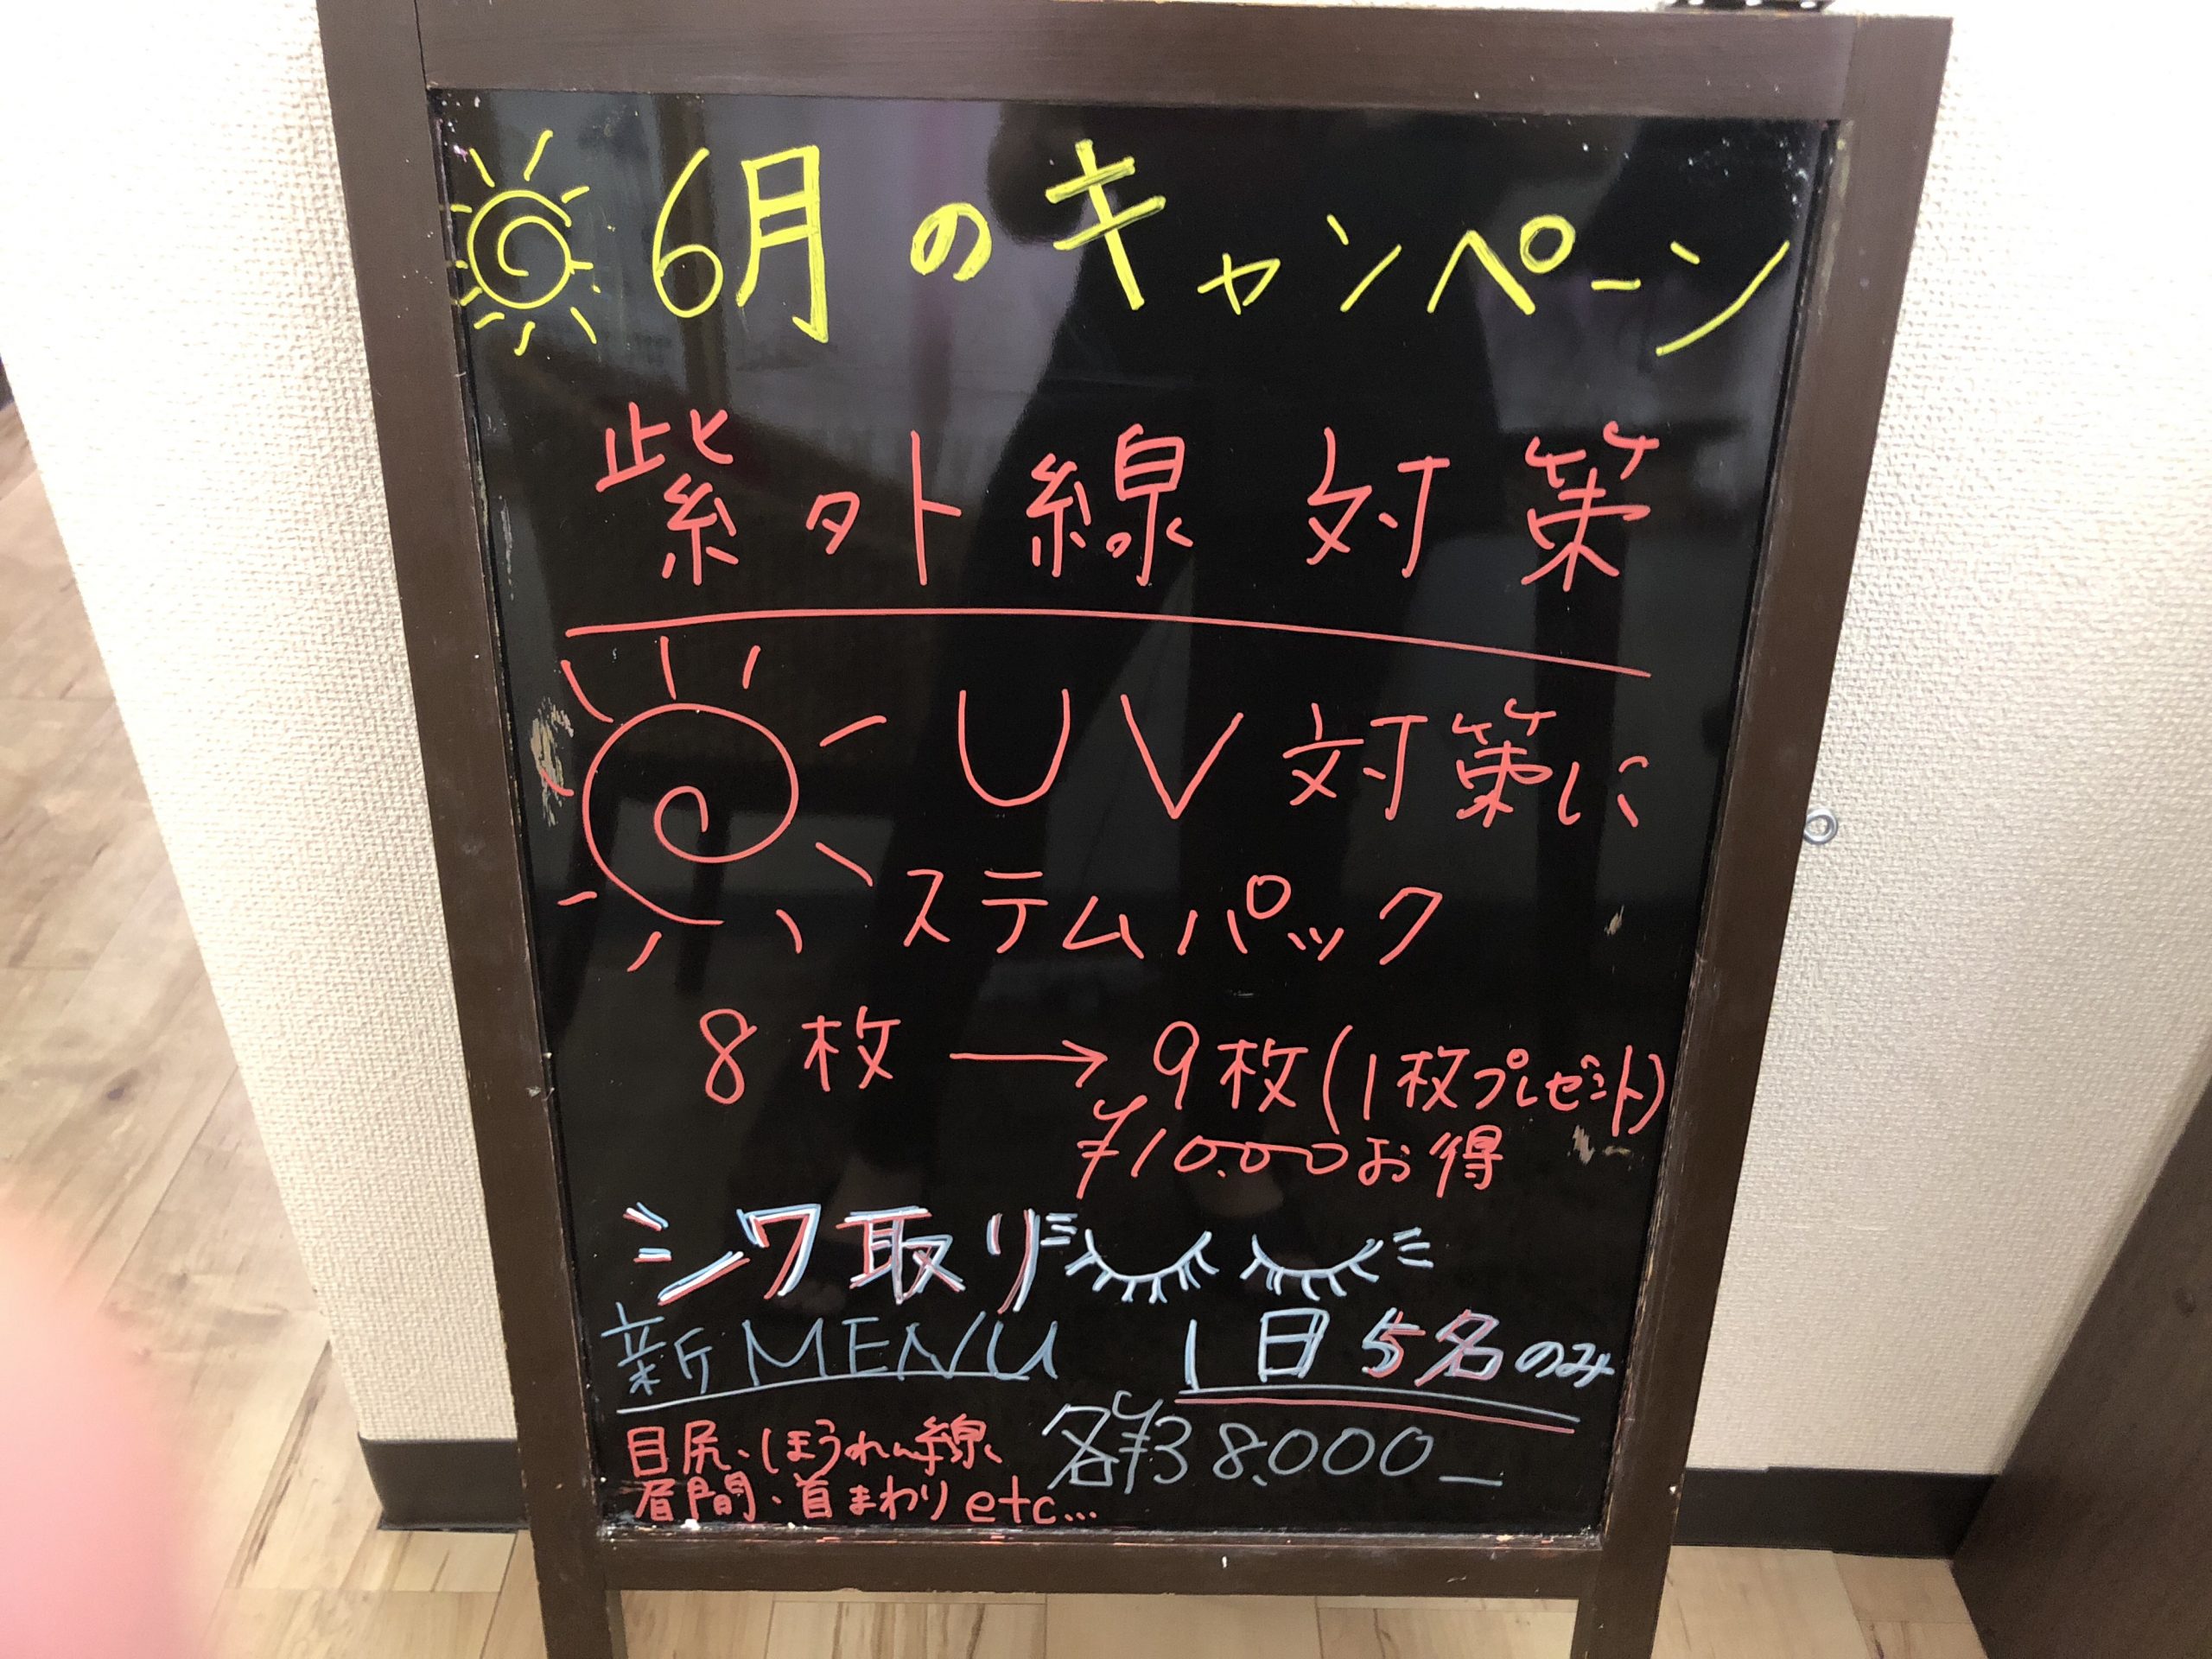 6月のキャンペーン
紫外線対策
UV対策に
ステムパック
8枚→9枚(1枚プレゼント)
¥10.000お得
シワ取り
新MENU 1日5名のみ
目尻、ほうれい線、
眉間、首まわりetc...
各¥38.000_